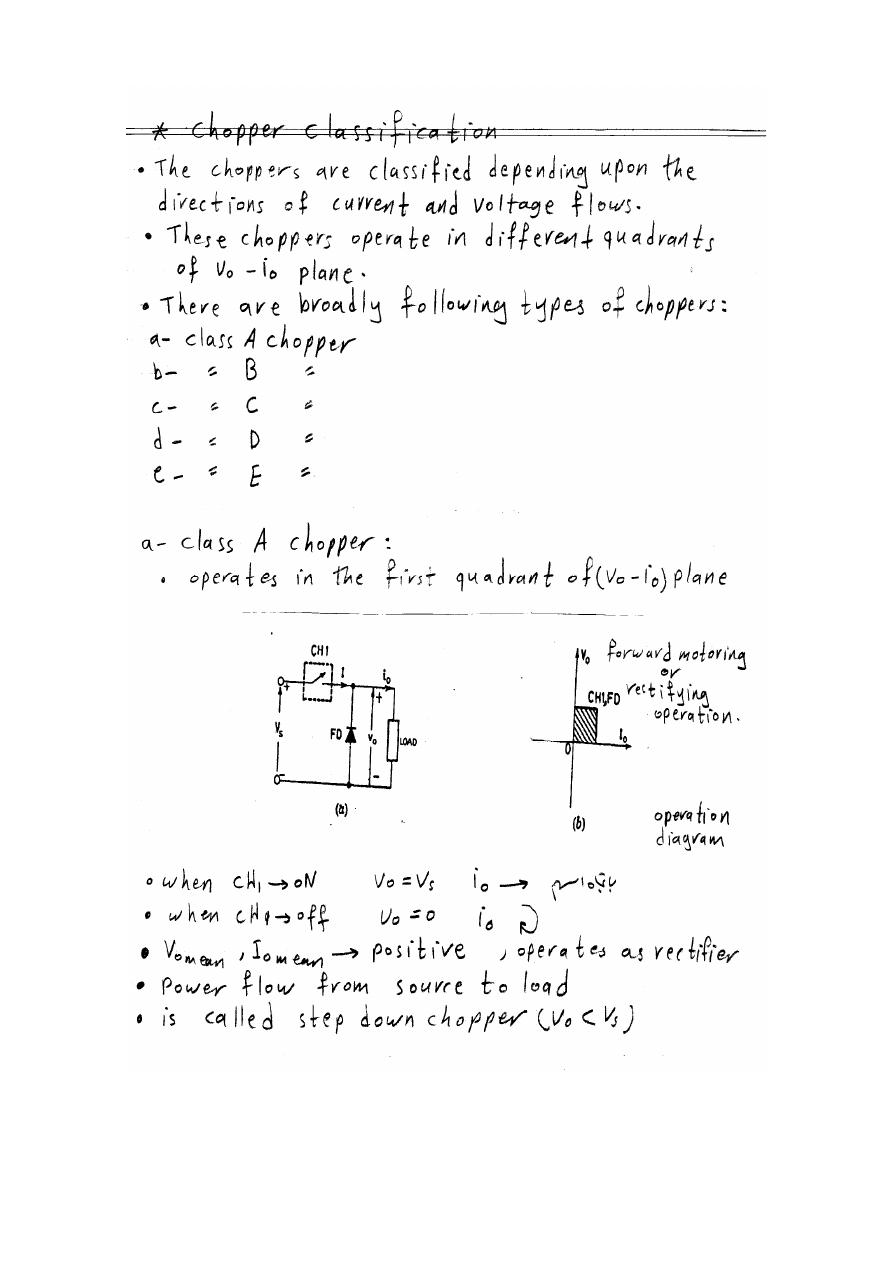 * Chopper classification
• The choppers are classified depending upon the
directions of current and voltage flows.
• These choppers operate in different quadrants
of Vo - io plane.
• There are broadly following types of choppers:
a- class A chopper
b- = B =
c- = C =
d- = D =
e- = E =
a- class A chopper:
• operates in the first quadrant of (Vo - io) plane
CH1
I
io
+
+
Vs
FD
Vo
LOAD
-
-
(a)
Vo
forward motoring
or
rectifying
operation.
CH1,FD
Io
0
(b)
operation
diagram
• when CH1 → ON Vo = Vs io →
• when CH1 → off Vo = 0 io
• Vomean, Iomean → positive, operates as rectifier
• Power flow from source to load
• is called step down chopper (Vo < Vs)